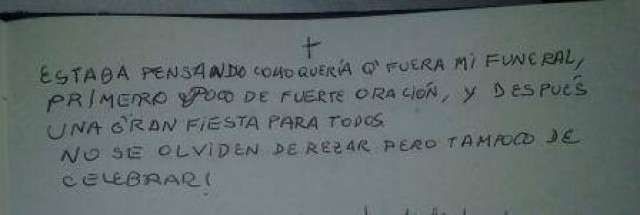 ESTABA PENSANDO COMO QUERÍA Q' FUERA MI FUNERAL,
PRIMERO POCO DE FUERTE ORACIÓN, Y DESPUÉS
UNA GRAN FIESTA PARA TODOS.
NO SE OLVIDEN DE REZAR PERO TAMPOCO DE
CELEBRAR!